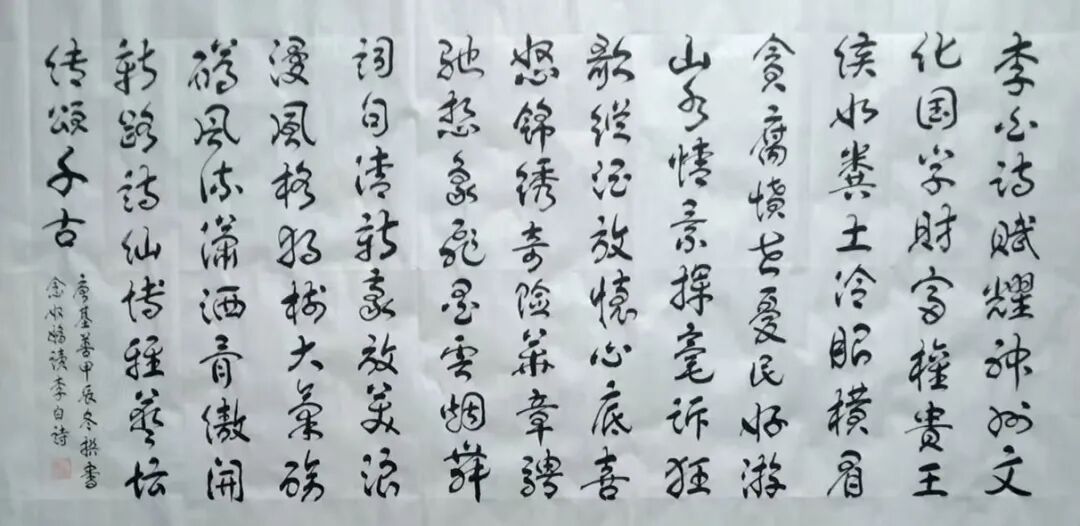 李白诗赋耀神州文
化国学财富權贵王
侯如粪土冷眼横眉
贪腐愤世憂民好游
山水情景挥毫诉狂
歌纵酒放懷心底喜
怒锦绣奇险华章骋
驰想象飞墨云烟舞
词句清新豪放美浪
漫风格独树大气磅
礴风流潇洒骨傲开
新路诗仙博雅艺坛
传颂千古
唐基善甲辰冬撰书
念奴娇读李白诗